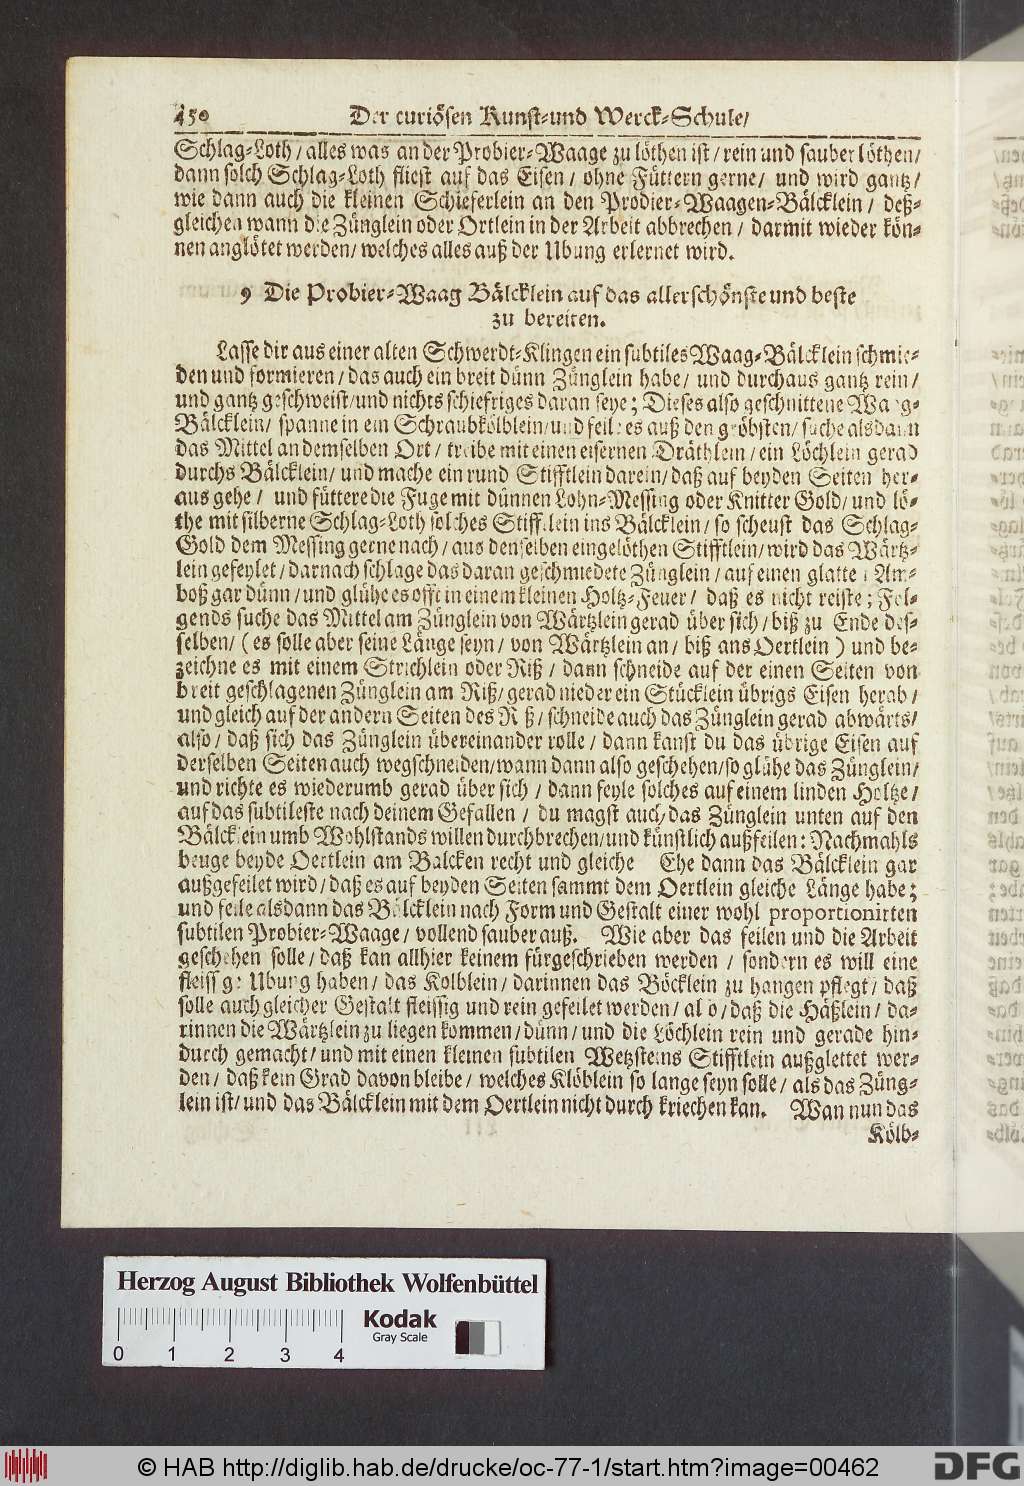 450 Der curiösen Kunst-und Werck-Schule/
Schlag-Loth/alles was an der Probier-Waage zu löthen ist/rein und sauber löthen/
dann solch Schlag-Loth fliest auf das Eisen/ ohne Füttern gerne/ und wird gantz/
wie dann auch die kleinen Schieferlein an den Prodier-Waagen-Bälcklein/ deß-
gleichen wann die Zünglein oder Ortlein in der Arbeit abbrechen/ darmit wieder kön-
nen anglötet werden/welches alles auß der Ubung erlernet wird.
9 Die Probier-Waag Bälcklein auf das allerschönste und beste
zu bereiten.
Lasse dir aus einer alten Schwerdt-Klingen ein subtiles Waag-Bälcklein schmie-
den und formieren/das auch ein breit dünn Zünglein habe/ und durchaus gantz rein/
und gantz geschweist/und nichts schiefriges daran seye; Dieses also geschnittene Waag-
Bälcklein/ spanne in ein Schraubkölblein/und feile es auß den gröbsten/suche alsdann
das Mittel an demselben Ort/ treibe mit einen eisernen Dräthlein/ein Löchlein gerad
durchs Bälcklein/ und mache ein rund Stifftlein darein/daß auf beyden Seiten her-
aus gehe/ und füttere die Fuge mit dünnen Lohn-Messing oder Knitter Gold/und lö-
the mit silberne Schlag-Loth solches Stifftlein ins Bälcklein/so scheust das Schlag-
Gold dem Messing gerne nach/aus denselben eingelöthen Stifftlein/wird das Wärtz-
lein gefeylet/darnach schlage das daran geschmiedete Zünglein/auf einen glatten Am-
boß gar dünn/und glühe es offt in einem kleinen Holtz-Feuer/ daß es nicht reiste; Fol-
gends suche das Mittel am Zünglein von Wärtzlein gerad über sich/biß zu Ende des-
selben/ (es solle aber seine Länge seyn/ von Wärtzlein an/ biß ans Oertlein) und be-
zeichne es mit einem Strichlein oder Riß/ dann schneide auf der einen Seiten von
breit geschlagenen Zünglein am Riß/gerad nieder ein Stücklein übrigs Eisen herab/
und gleich auf der andern Seiten des Riß/schneide auch das Zünglein gerad abwärts/
also/ daß sich das Zünglein übereinander rolle/ dann kanst du das übrige Eisen auf
derselben Seiten auch wegschneiden/wann dann also geschehen/so glühe das Zünglein/
und richte es wiederumb gerad über sich/dann feyle solches auf einem linden Holtze/
auf das subtileste nach deinem Gefallen/ du magst auch das Zünglein unten auf den
Bälcklein umb Wohlstands willen durchbrechen/und künstlich außfeilen: Nachmahls
beuge beyde Oertlein am Balcken recht und gleiche Ehe dann das Bälcklein gar
außgefeilet wird/daß es auf beyden Seiten sammt dem Oertlein gleiche Länge habe;
und feile alsdann das Bälcklein nach Form und Gestalt einer wohl proportionirten
subtilen Probier-Waage/ vollend sauber auß. Wie aber das feilen und die Arbeit
geschehen solle/daß kan allhier keinem fürgeschrieben werden/ sondern es will eine
fleissige Ubung haben/das Kolblein/darinnen das Böcklein zu hangen pflegt/daß
solle auch gleicher Gestalt fleissig und rein gefeilet werden/also/daß die Häßlein/da-
rinnen die Wärtzlein zu liegen kommen/dünn/und die Löchlein rein und gerade hin-
durch gemacht/und mit einen kleinen subtilen Wetzsteins Stifftlein außglettet wer-
den/daß kein Grad davon bleibe/welches Klöblein so lange seyn solle/als das Züng-
lein ist/und das Bälcklein mit dem Oertlein nicht durch kriechen kan. Wan nun das
Kölb-
Herzog August Bibliothek Wolfenbüttel
Kodak
Gray Scale
0 1 2 3 4
© HAB http://diglib.hab.de/drucke/oc-77-1/start.htm?image=00462
DFG